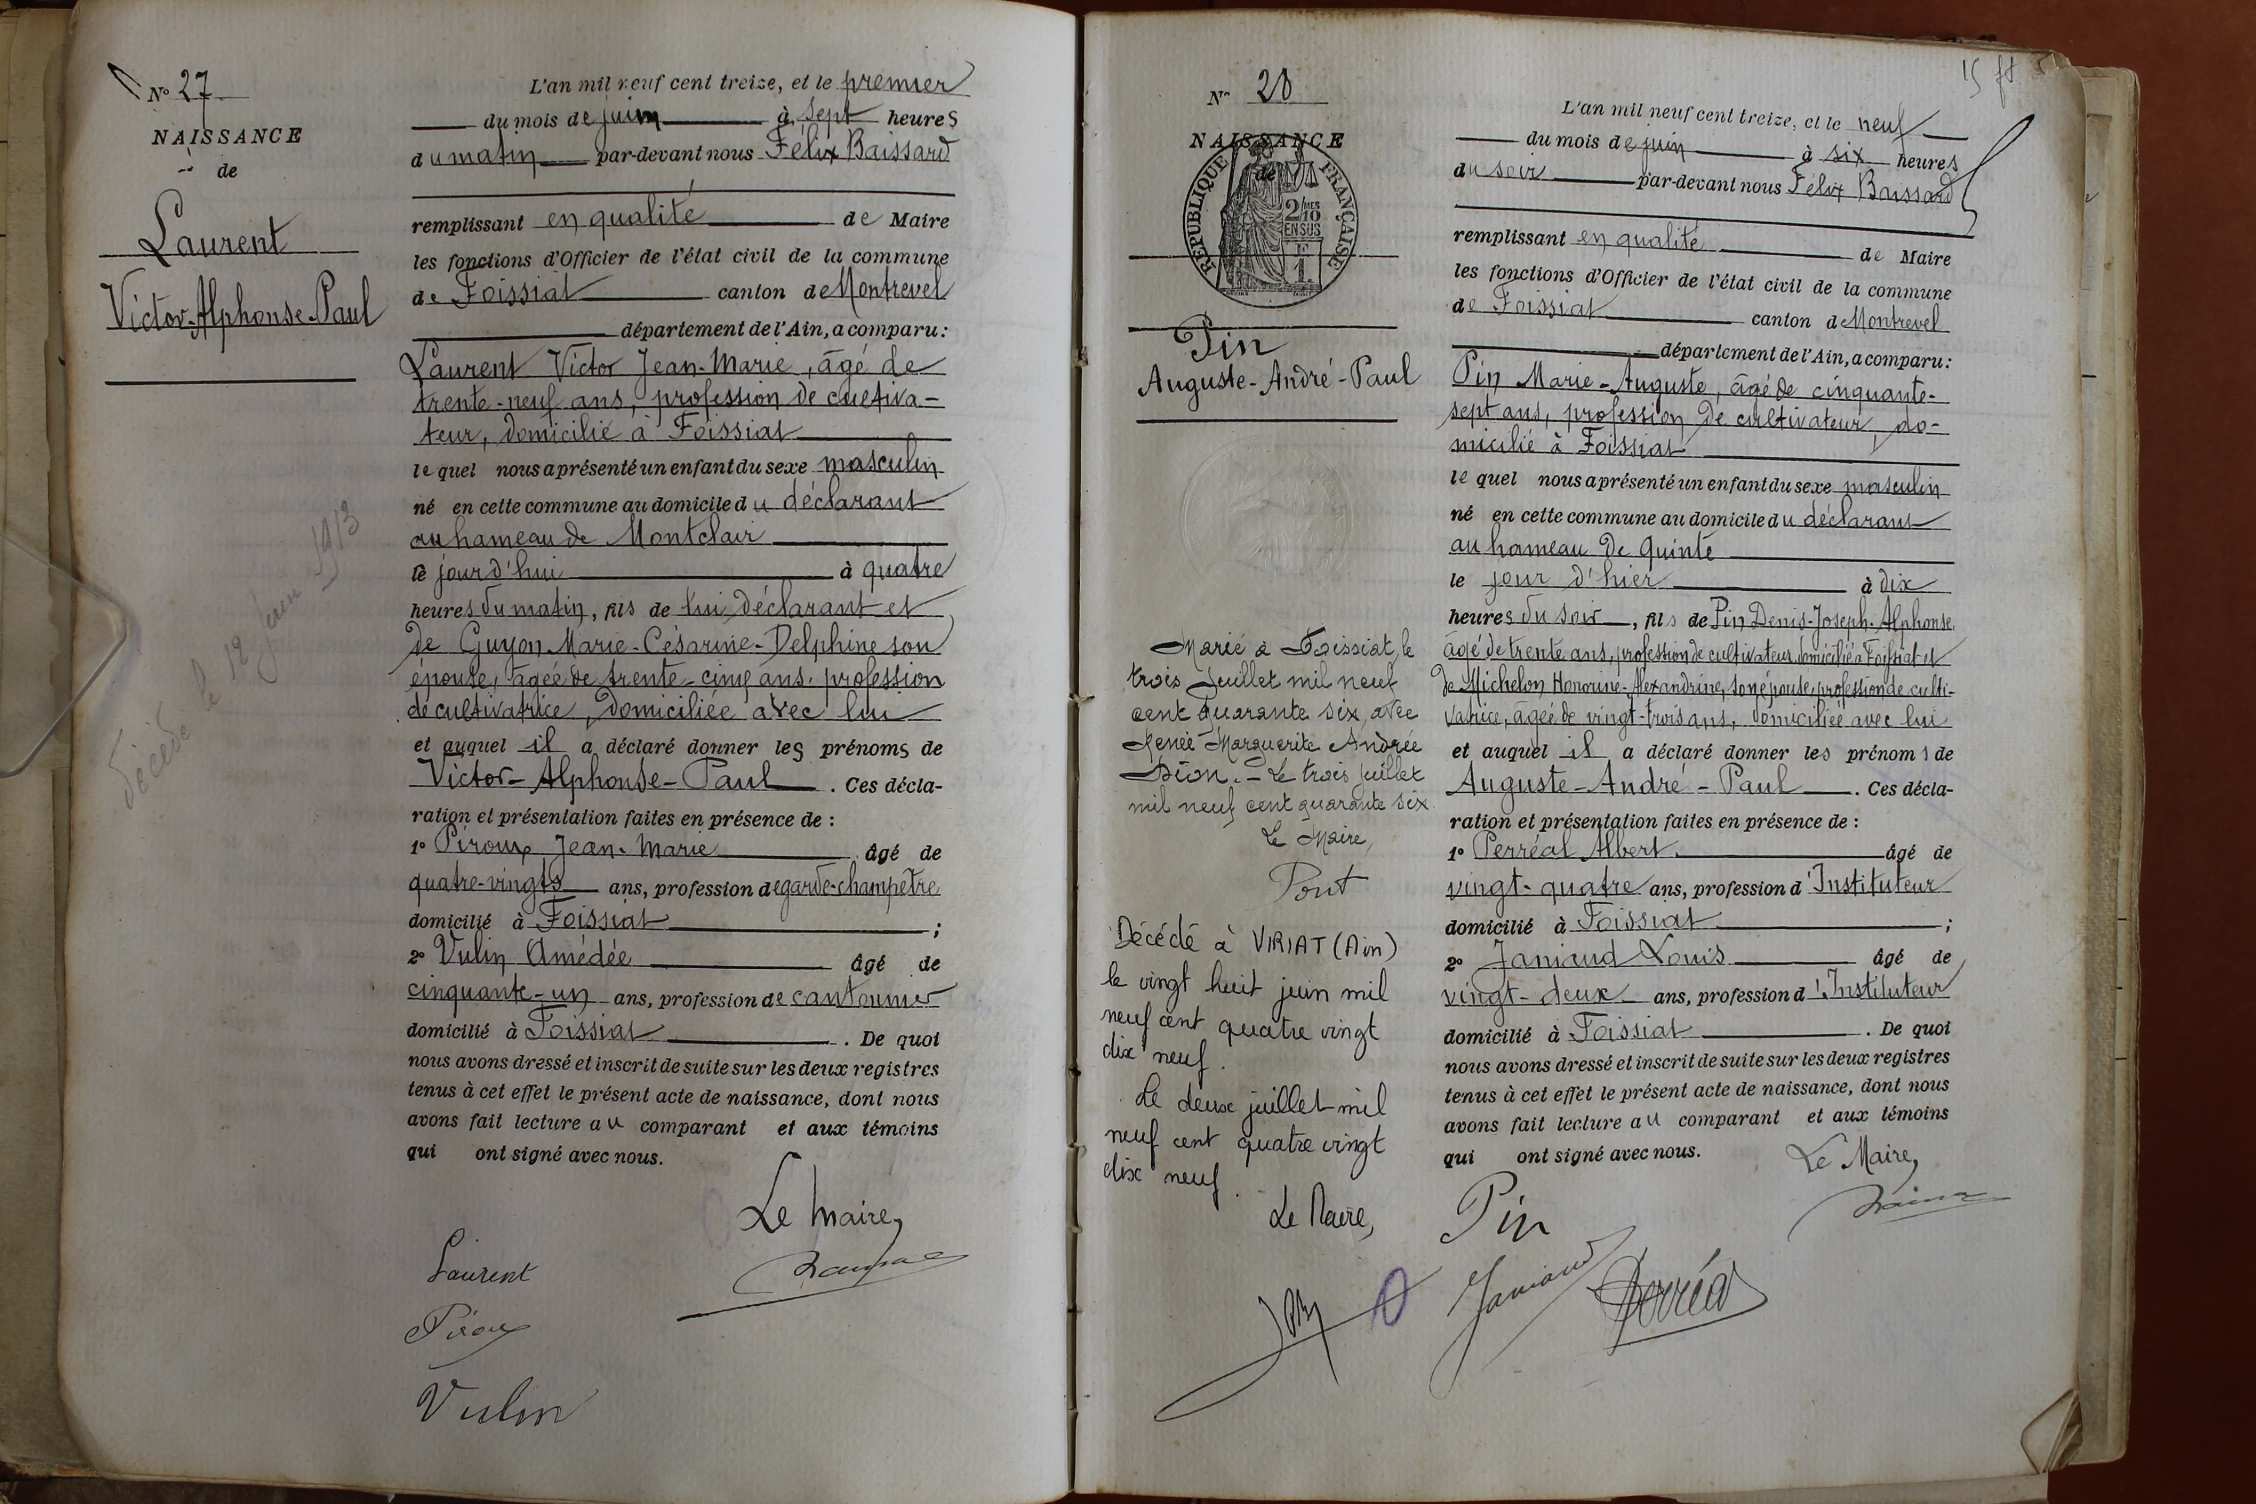 N° 27
NAISSANCE
de
Laurent
Victor-Alphonse-Paul
décédé le 12 juin 1913
L'an mil neuf cent treize, et le premier
du mois de juin à sept heures
du matin par-devant nous Félix Baissard
remplissant en qualité de Maire
les fonctions d'Officier de l'état civil de la commune
de Foissiat canton de Montrevel
département de l'Ain, a comparu :
Laurent Victor Jean-Marie, âgé de
trente-neuf ans, profession de cultiva-
teur, domicilié à Foissiat
lequel nous a présenté un enfant du sexe masculin
né en cette commune au domicile du déclarant
au hameau de Montclair
le jourd'hui à quatre
heures du matin, fils de lui déclarant et
de Guyon Marie-Césarine-Delphine son
épouse, âgée de trente-cinq ans, profession
de cultivatrice, domiciliée avec lui
et auquel il a déclaré donner les prénoms de
Victor-Alphonse-Paul. Ces décla-
ration et présentation faites en présence de :
1° Piroux Jean-Marie âgé de
quatre-vingts ans, profession de garde-champêtre
domicilié à Foissiat ;
2° Vulin Amédée âgé de
cinquante-un ans, profession de cantonnier
domicilié à Foissiat. De quoi
nous avons dressé et inscrit de suite sur les deux registres
tenus à cet effet le présent acte de naissance, dont nous
avons fait lecture au comparant et aux témoins
qui ont signé avec nous.
Le Maire,
Laurent
Piroux
Vulin
N° 28
NAISSANCE
de
REPUBLIQUE FRANÇAISE
2/10 MES
EN SUS
F.
1.
Pin
Auguste-André-Paul
Marié à Foissiat, le
trois Juillet mil neuf
cent quarante six, avec
Renée Marguerite Andrée
Dion. - Le trois juillet
mil neuf cent quarante six.
Le Maire,
Pont
Décédé à VIRIAT (Ain)
le vingt huit juin mil
neuf cent quatre vingt
dix neuf.
Le deux juillet mil
neuf cent quatre vingt
dix neuf.
Le Maire,
L'an mil neuf cent treize, et le neuf
du mois de juin à six heures
du soir par-devant nous Félix Baissard
remplissant en qualité de Maire
les fonctions d'Officier de l'état civil de la commune
de Foissiat canton de Montrevel
département de l'Ain, a comparu :
Pin Marie-Auguste, âgé de cinquante-
sept ans, profession de cultivateur, do-
micilié à Foissiat
lequel nous a présenté un enfant du sexe masculin
né en cette commune au domicile du déclarant
au hameau de Quinte
le jour d'hier à dix
heures du soir, fils de Pin Denis-Joseph-Alphonse,
âgé de trente ans, profession de cultivateur, domicilié à Foissiat et
de Michelon Honorine-Alexandrine, son épouse, profession de culti-
vatrice, âgée de vingt-trois ans, domiciliée avec lui
et auquel il a déclaré donner les prénoms de
Auguste-André-Paul. Ces décla-
ration et présentation faites en présence de :
1° Perréal Albert âgé de
vingt-quatre ans, profession d'Instituteur
domicilié à Foissiat ;
2° Janiaud Louis âgé de
vingt-deux ans, profession d'Instituteur
domicilié à Foissiat. De quoi
nous avons dressé et inscrit de suite sur les deux registres
tenus à cet effet le présent acte de naissance, dont nous
avons fait lecture au comparant et aux témoins
qui ont signé avec nous.
Le Maire,
Pin
Janiaud
Perréal